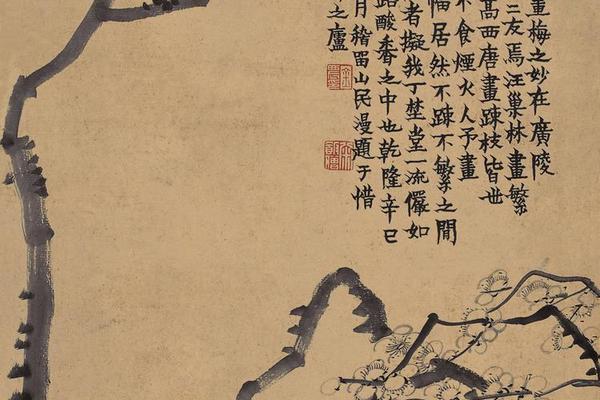 畫梅之妙在廣陵
二友焉汪巢林畫繁
高西唐畫疎枝皆世
不食煙火人予畫
幅居然不疎不繁之間
者擬我丁埜堂一流儼如
路酸香之中也乾隆辛巳
月稽留山民漫題于惜
之廬